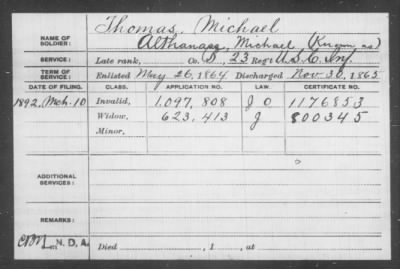 NAME OF SOLDIER: Thomas, Michael
Michael (Known as)
SERVICE: Late rank, Co. D, 23 Reg't U.S.C. Inf.
TERM OF SERVICE: Enlisted May 26, 1864 Discharged Nov. 30, 1865
DATE OF FILING. CLASS. APPLICATION NO. LAW. CERTIFICATE NO.
1892, Mch. 10 Invalid, 1,097,808 J O 1176853
Widow, 623,413 J 800345
Minor,
ADDITIONAL SERVICES:
REMARKS:
N. D. A. Died , 1 , at